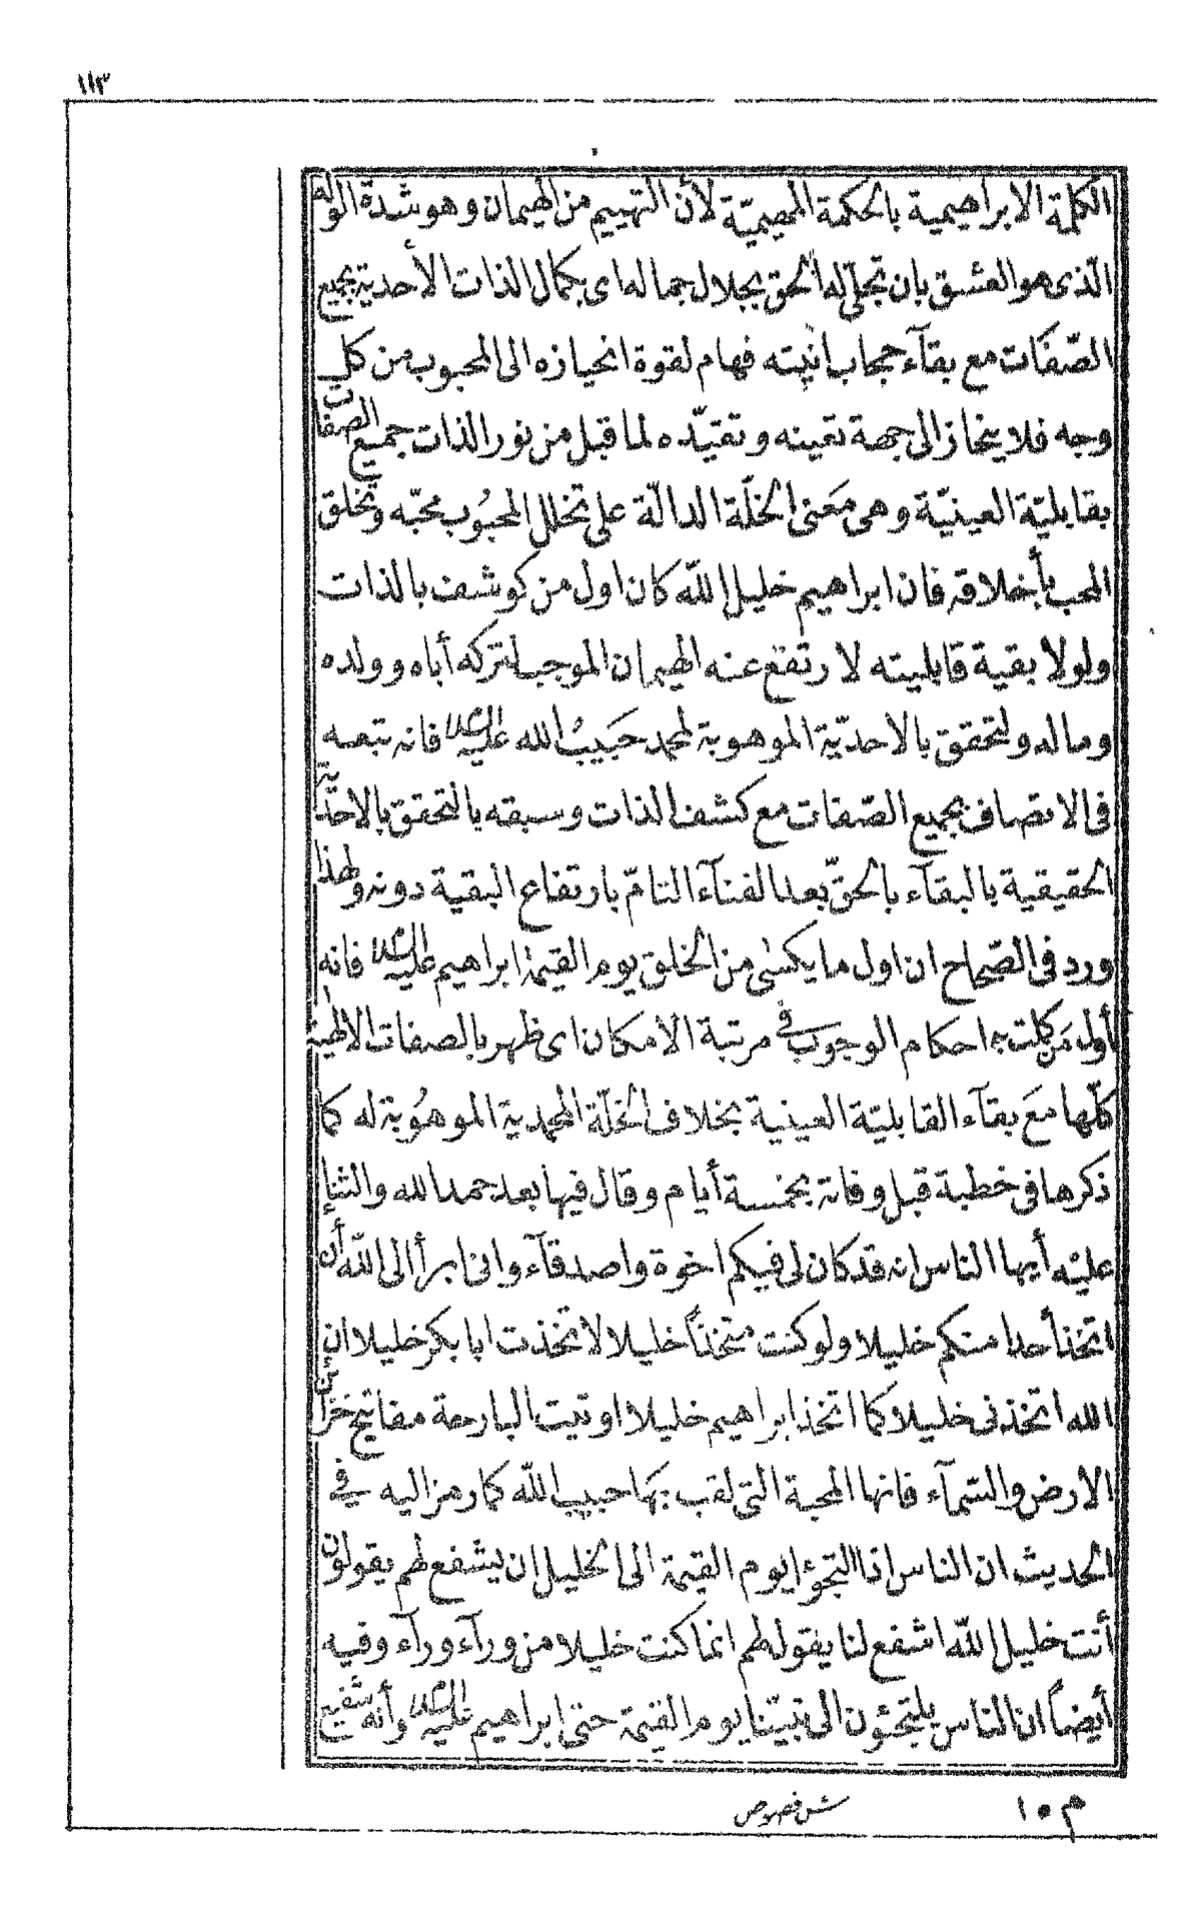 ١١٣
الكلمة الابراهيمية بالحكمة المهيميّة لأن التهييم من الهيمان وهو شدّة الوله
الّذى هو العشق بان تجلّى له الحق بجلال جماله اى بكمال الذات الأحدية بجميع
الصّفَات مع بقآء حجاب انيّته فهام لقوة انحيازه الى المحبوب من كل
وجه فلا ينحاز الى جهة تعينه وتقيّده لما قبل من نور الذات جميع الصفات
بقابليّة العينيّة وهى مَعَنى الخلّة الدالّة على تخلل المحبُوب محبّه وتخلق
المحب بأخلاقه فان ابراهيم خليل اللّه كان اول من كوشف بالذات
ولولا بقية قابليته لا رتفع عنه الهيمان الموجب لتركه أباه وولده
وماله ولتحقق بالاحديّة الموهوبة لمحمد حَبيبُ الله عليه السلام فانه تبعه
فى الاتصاف بجميع الصّفات مع كشف الذات وسبقه بالتحقق بالاحديّة
الحقيقية بالبقآء بالحقّ بعد الفنآء التامّ بارتفاع البقية دونه ولهذا
ورد فى الصّحاح ان اول ما يكسٰى من الخلق يوم القيمة ابراهيم عليه السلام فانه
أول مَن كملت به احكام الوجوب فى مرتبة الامكان اى ظهر بالصفات الالهية
كلّها مَع بقآء القابليّة العينية بخلاف الخلّة المحمدية الموهوُبة له كما
ذكرها فى خطبة قبل وفاته بخمسة أيام وقال فيها بعد حمد الله والثنآء
عليْه أيها الناس انه قد كان لى فيكم اخوة واصدقآء وانى ابرأ الى اللّه أن
اتخذ أحدا منكم خليلا ولو كنت متخذاً خليلا لاتخذت ابا بكر خليلا ان
الله اتخذنى خليلا كما اتخذ ابراهيم خليلا اوتيت البارحة مفاتيح خزآئن
الارض والسّمآء فانها المحبة التى لقب بهَا حبيب اللّه كما رمز اليه فى
الحديث ان الناس اذا التجؤا يوم القيمة الى الخليل ان يشفع لهم يقولون
أنت خليل اللّه اشفع لنا يقول لهم انما كنت خليلا من ورآء ورآء وفيه
أيضاً ان الناس يلتجئون الى نبيّنا يوم القيمة حتى ابراهيم عليه السلام وأنه شفيع
م ١٥
ش فصوص